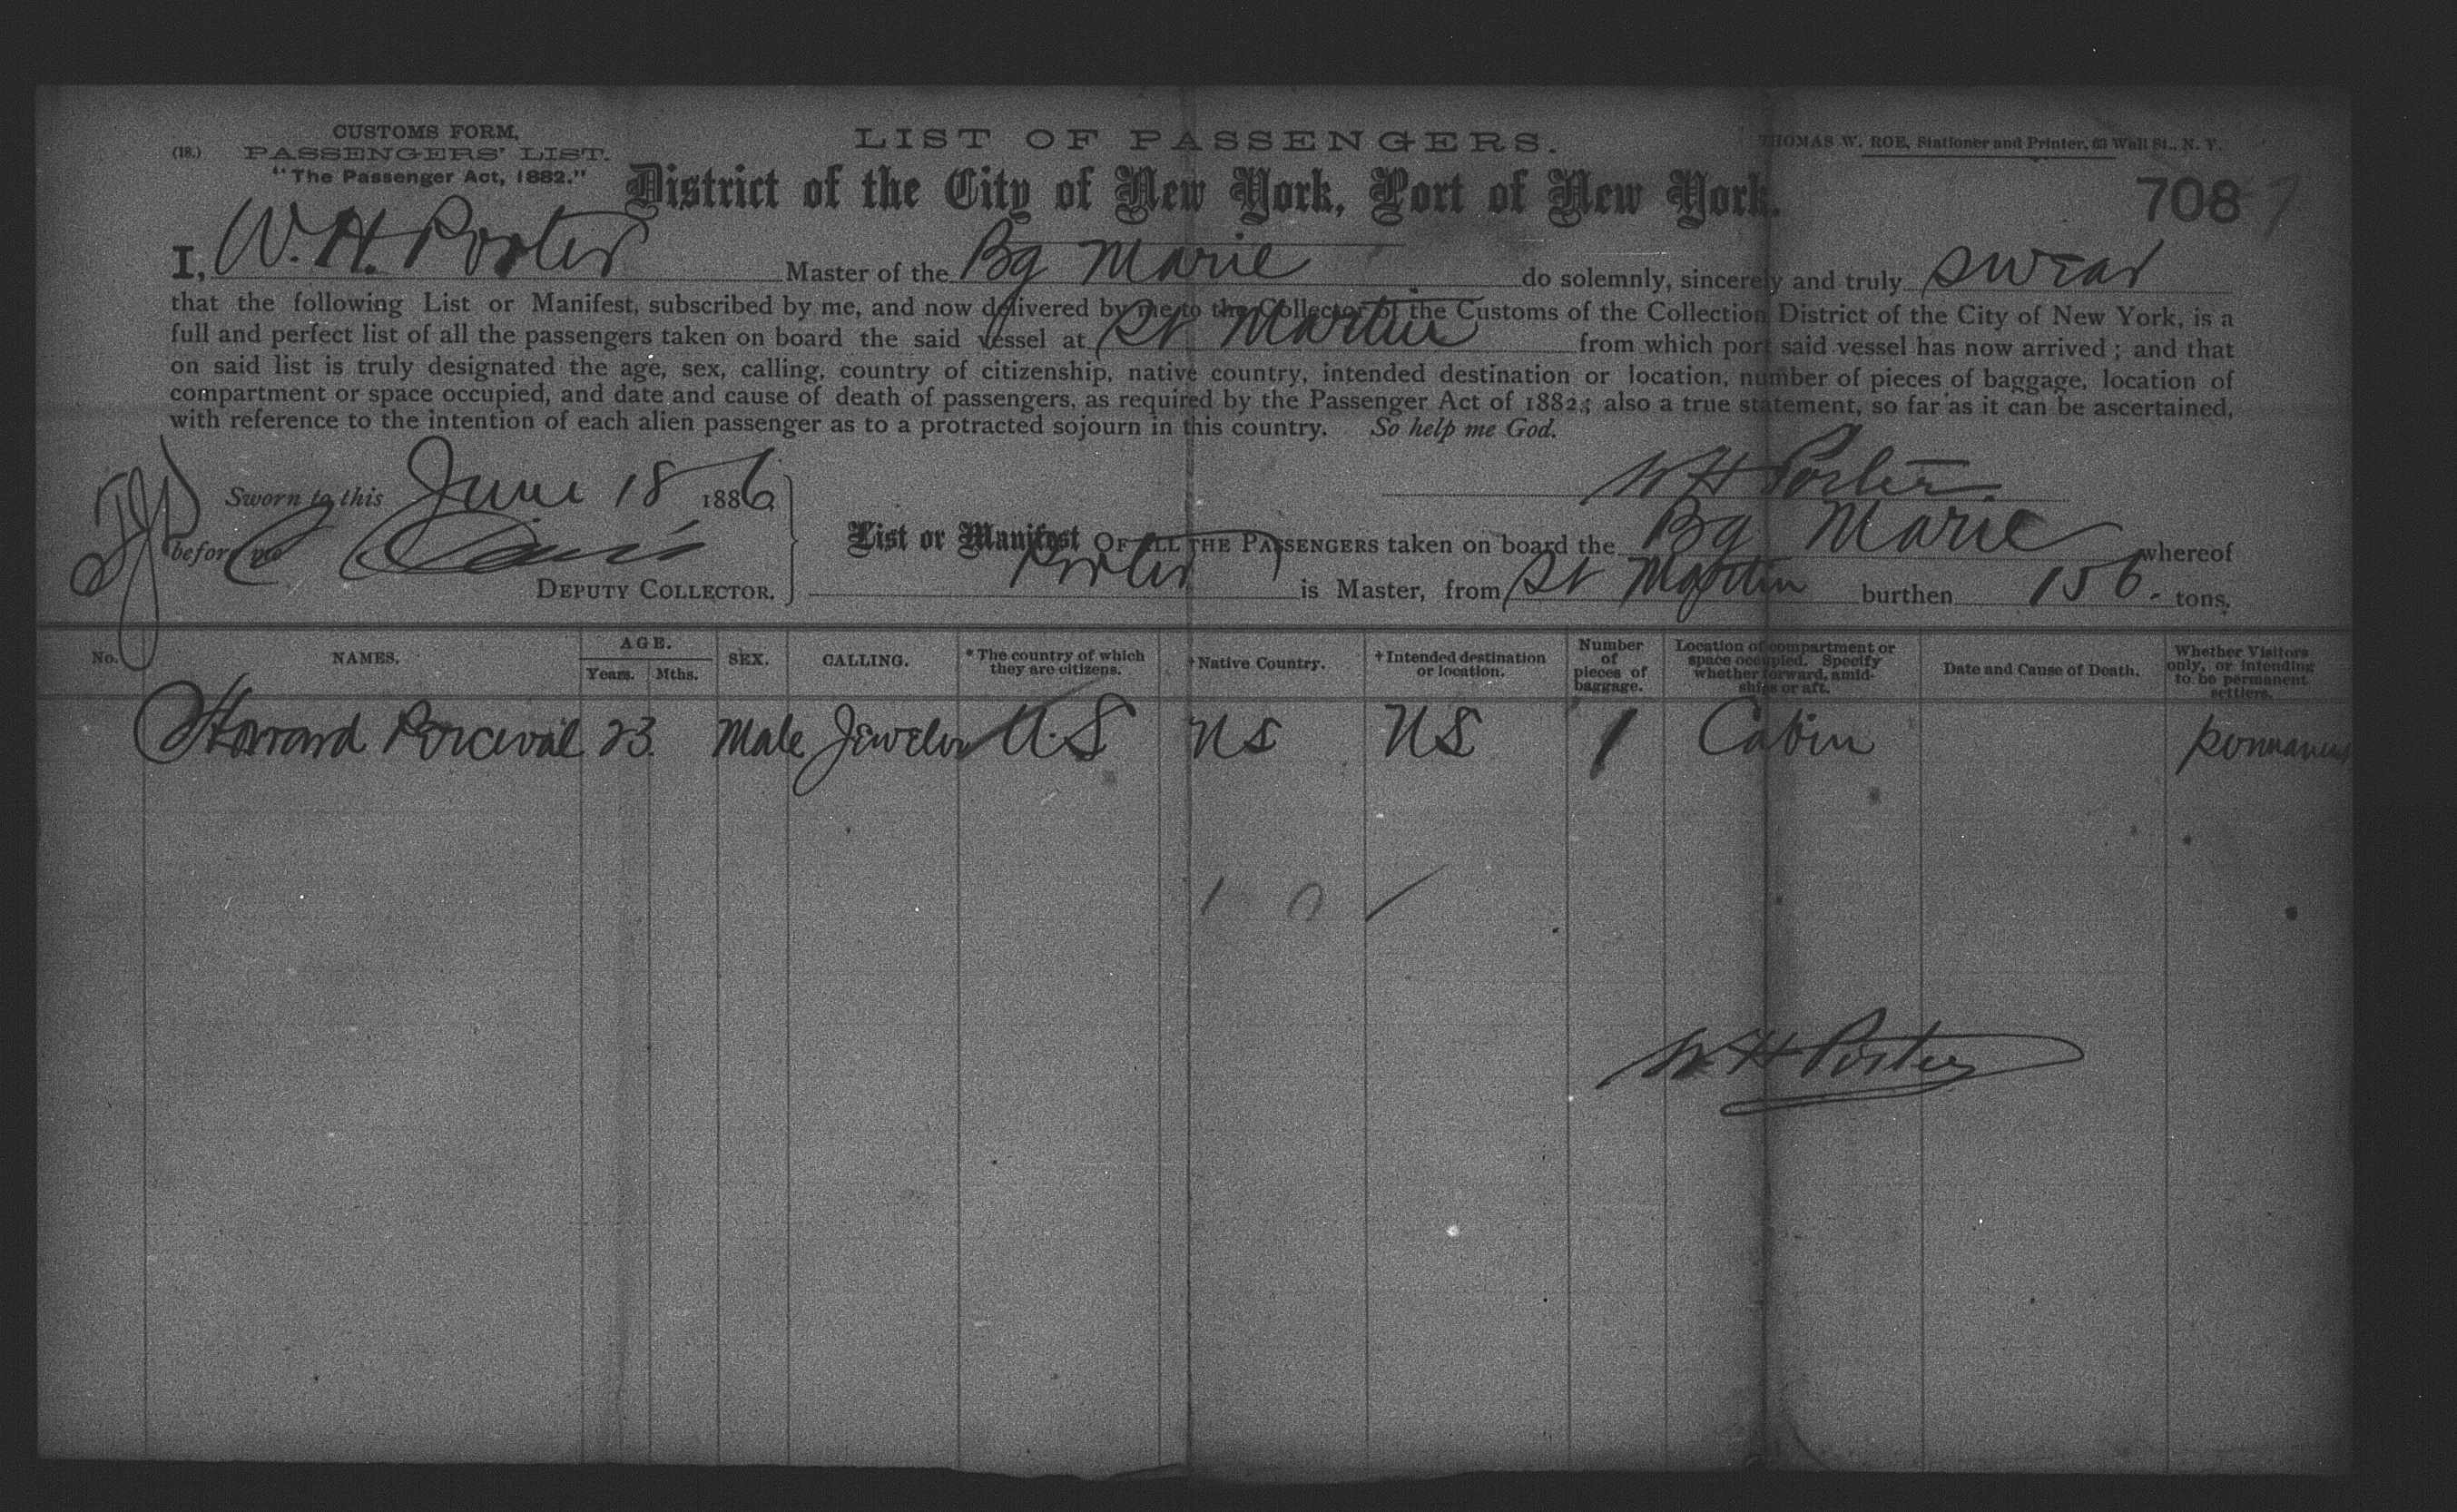 CUSTOMS FORM,
(18.) PASSENGERS' LIST.
"The Passenger Act, 1882."
LIST OF PASSENGERS.
THOMAS W. ROE, Stationer and Printer, 63 Wall St., N. Y.
District of the City of New York, Port of New York.
708
I, W. H. Porter Master of the Bg Marie do solemnly, sincerely and truly swear
that the following List or Manifest, subscribed by me, and now delivered by me to the Collector of the Customs of the Collection District of the City of New York, is a
full and perfect list of all the passengers taken on board the said vessel at St Martin from which port said vessel has now arrived; and that
on said list is truly designated the age, sex, calling, country of citizenship, native country, intended destination or location, number of pieces of baggage, location of
compartment or space occupied, and date and cause of death of passengers, as required by the Passenger Act of 1882; also a true statement, so far as it can be ascertained,
with reference to the intention of each alien passenger as to a protracted sojourn in this country. So help me God.
Sworn to this June 18 1886
W H Porter
before me C C Davis
DEPUTY COLLECTOR.
List or Manifest OF ALL THE PASSENGERS taken on board the Bg Marie whereof
Porter is Master, from St Martin burthen 156. tons.
No. NAMES. AGE. Years. Mths. SEX. CALLING. *The country of which they are citizens. †Native Country. †Intended destination or location. Number of pieces of baggage. Location of compartment or space occupied. Specify whether forward, amidships or aft. Date and Cause of Death. Whether Visitors only, or intending to be permanent settlers.
Howard Perceval 23 Male Jeweler U.S US US 1 Cabin permanent
W H Porter